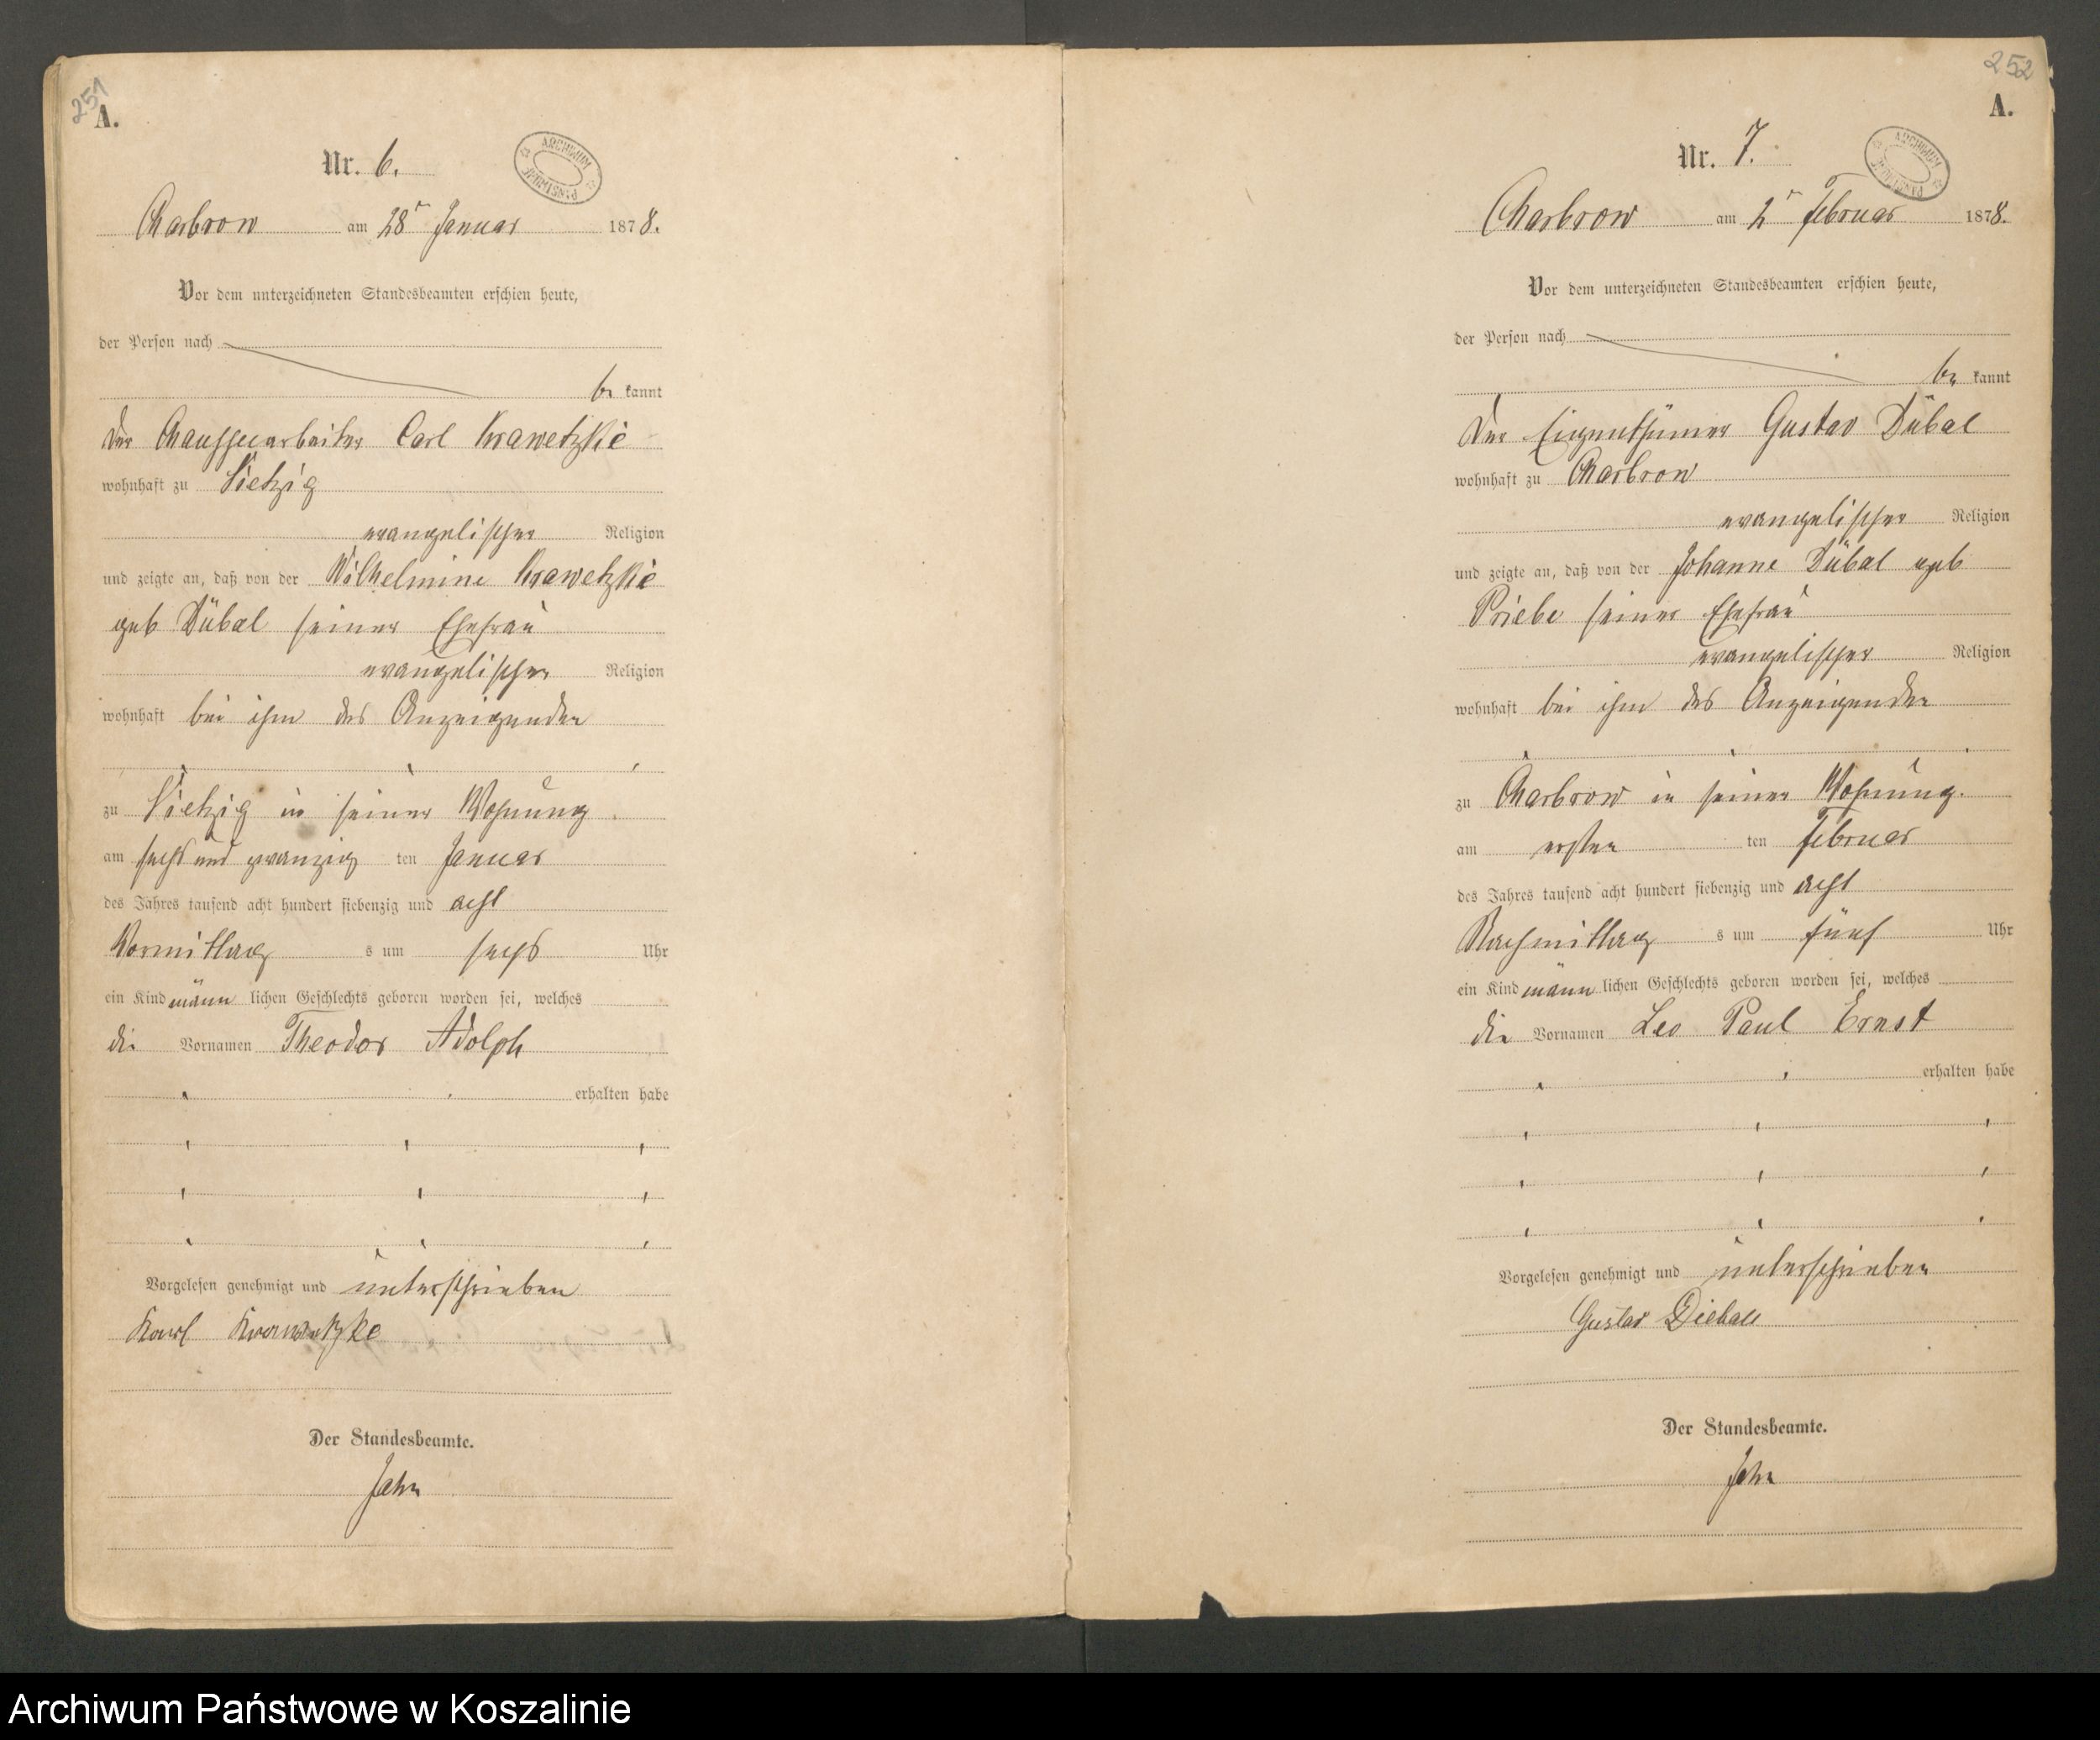 251
A.
Nr. 6.
ARCHIWUM PAŃSTWOWE
Charbrow am 28t Januar 1878.
Vor dem unterzeichneten Standesbeamten erschien heute,
der Person nach
be kannt
der Chausseearbeiter Carl Krawetzkie
wohnhaft zu Vietzig
evangelischer Religion
und zeigte an, daß von der Wilhelmine Krawetzkie
geb Dübal seiner Ehefrau
evangelischer Religion
wohnhaft bei ihm des Anzeigenden
zu Vietzig in seiner Wohnung.
am sechs und zwanzig ten Januar
des Jahres tausend acht hundert siebenzig und acht
Vormittag s um sechs Uhr
ein Kind männ lichen Geschlechts geboren worden sei, welches
die Vornamen Theodor Adolph
erhalten habe
Vorgelesen genehmigt und unterschrieben
Karl Krawetzke
Der Standesbeamte.
Jahn
252
A.
Nr. 7.
ARCHIWUM PAŃSTWOWE
Charbrow am 2t Februar 1878.
Vor dem unterzeichneten Standesbeamten erschien heute,
der Person nach
be kannt
Der Eigenthümer Gustav Dübal
wohnhaft zu Charbrow
evangelischer Religion
und zeigte an, daß von der Johanne Dübal geb
Priebe seiner Ehefrau
evangelischer Religion
wohnhaft bei ihm des Anzeigenden
zu Charbrow in seiner Wohnung.
am ersten ten Februar
des Jahres tausend acht hundert siebenzig und acht
Nachmittag s um fünf Uhr
ein Kind männ lichen Geschlechts geboren worden sei, welches
die Vornamen Leo Paul Ernst
erhalten habe
Vorgelesen genehmigt und unterschrieben
Gustav Dieball
Der Standesbeamte.
Jahn
Archiwum Państwowe w Koszalinie